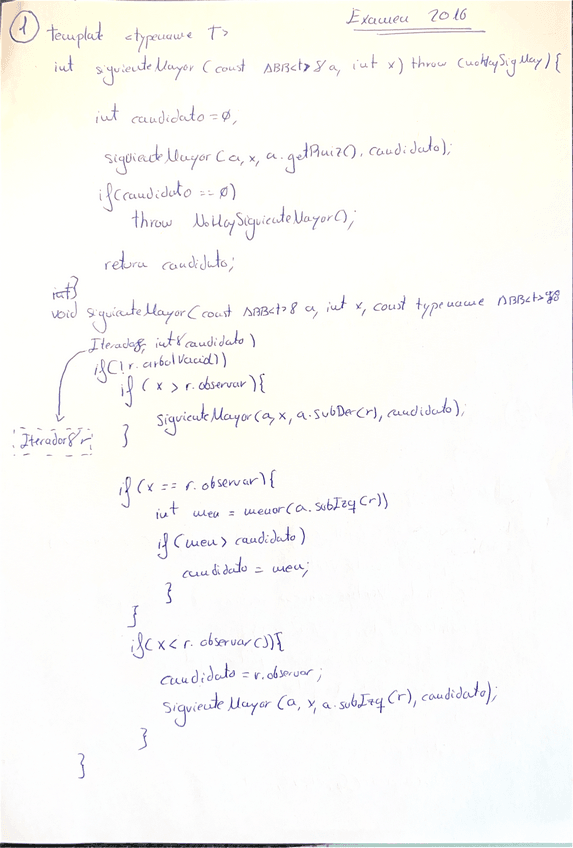 Examen 2016
① template <typename T>
int siguienteMayor (const ABB<t> & a, int x) throw (noHaySigMay){
int candidato = 0,
siguienteMayor (a, x, a.getRaiz(), candidato);
if(candidato == 0)
throw NoHaySiguienteMayor();
return candidato;
int}
void siguienteMayor (const ABB<t> & a, int x, const typename ABB<t>::
Iterador&, int& candidato)
if(!r.arbolVacio())
if (x > r.observar){
siguienteMayor (a, x, a.subDer(r), candidato);
Iterador& r, }
if (x == r.observar){
int men = menor (a.subIzq (r))
if (men > candidato)
candidato = men;
}
}
if(x < r.observar()){
candidato = r.observar;
siguienteMayor (a, x, a.subIzq (r), candidato);
}
}